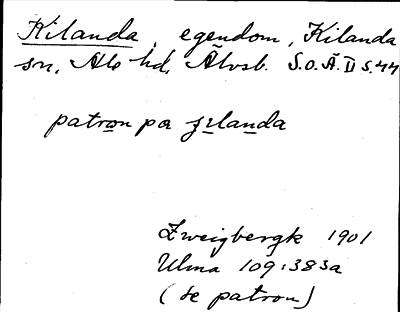 Kilanda, egendom, Kilanda
sn, Ale hd, Älvsb. S.o.Ä. II s. 44
patron på
Zweigbergk 1901
Ulma 109:383a
(se patron)